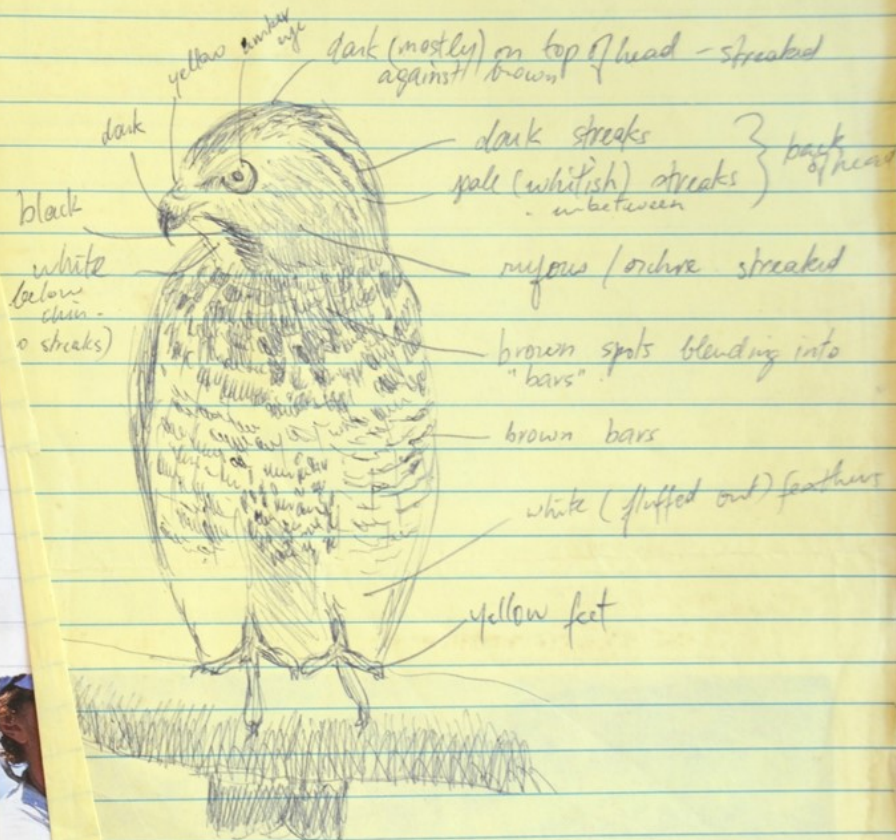 yellow
amber
eye
dark (mostly) on top of head - streaked
against brown
dark
dark streaks
pale (whitish) streaks
inbetween
back
of head
black
white
below
chin -
o streaks)
rufous / ochre streaked
brown spots blending into
"bars"
brown bars
white (fluffed out) feathers
yellow feet